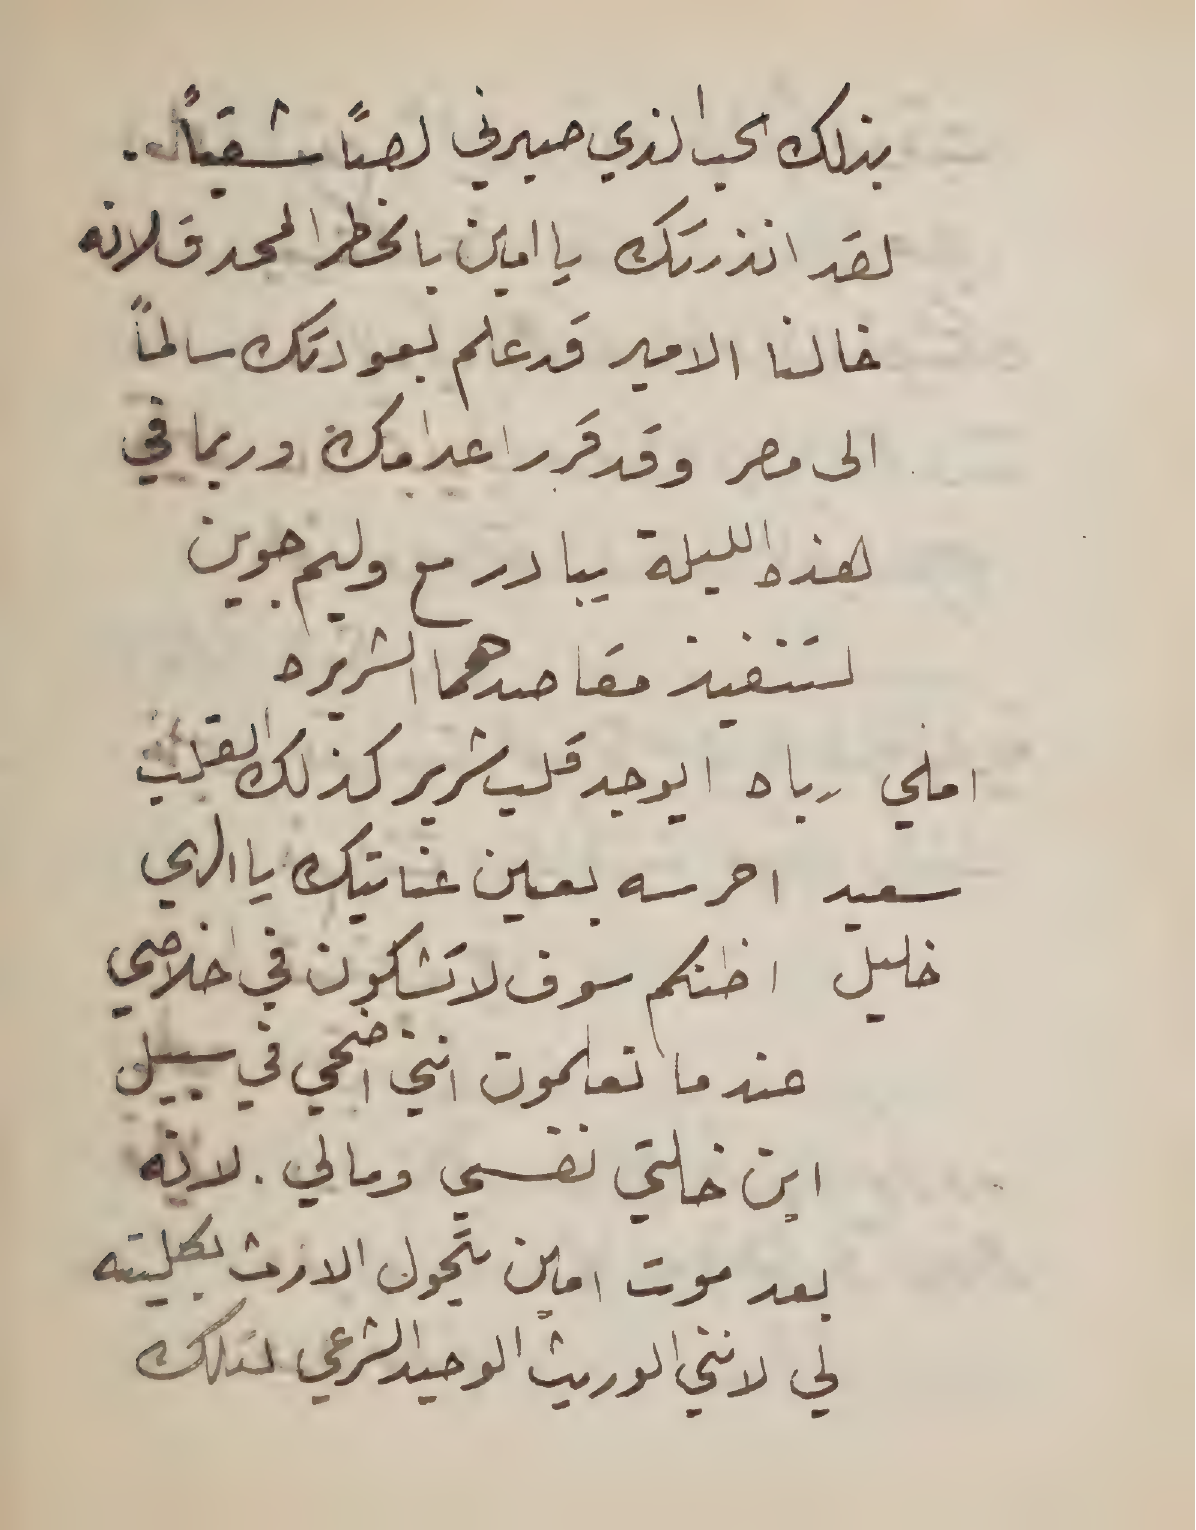 بذلك الحب الذي صيرني لصًا شقيًا.
لقد انذرتك يا امين بالخطر المحدق لانه
خالنا الامير قد علم بعودتك سالمًا
الى مصر وقد قرر اعدامك وربما في
هذه الليلة يبادر مع وليم جوين
لتنفيذ مقاصدهما الشريره
املي رباه ايوجد قلب شرير كذلك القلب
سعيد احرسه بعين عنايتك يا الهي
خليل اظنكم سوف لا تشكون في اخلاصي
عندما تعلمون انني اضحي في سبيل
ابن خالتي نفسي ومالي. لانه
بعد موت امين يتحول الارث بكليته
لي لانني الوريث الوحيد الشرعي لتلك